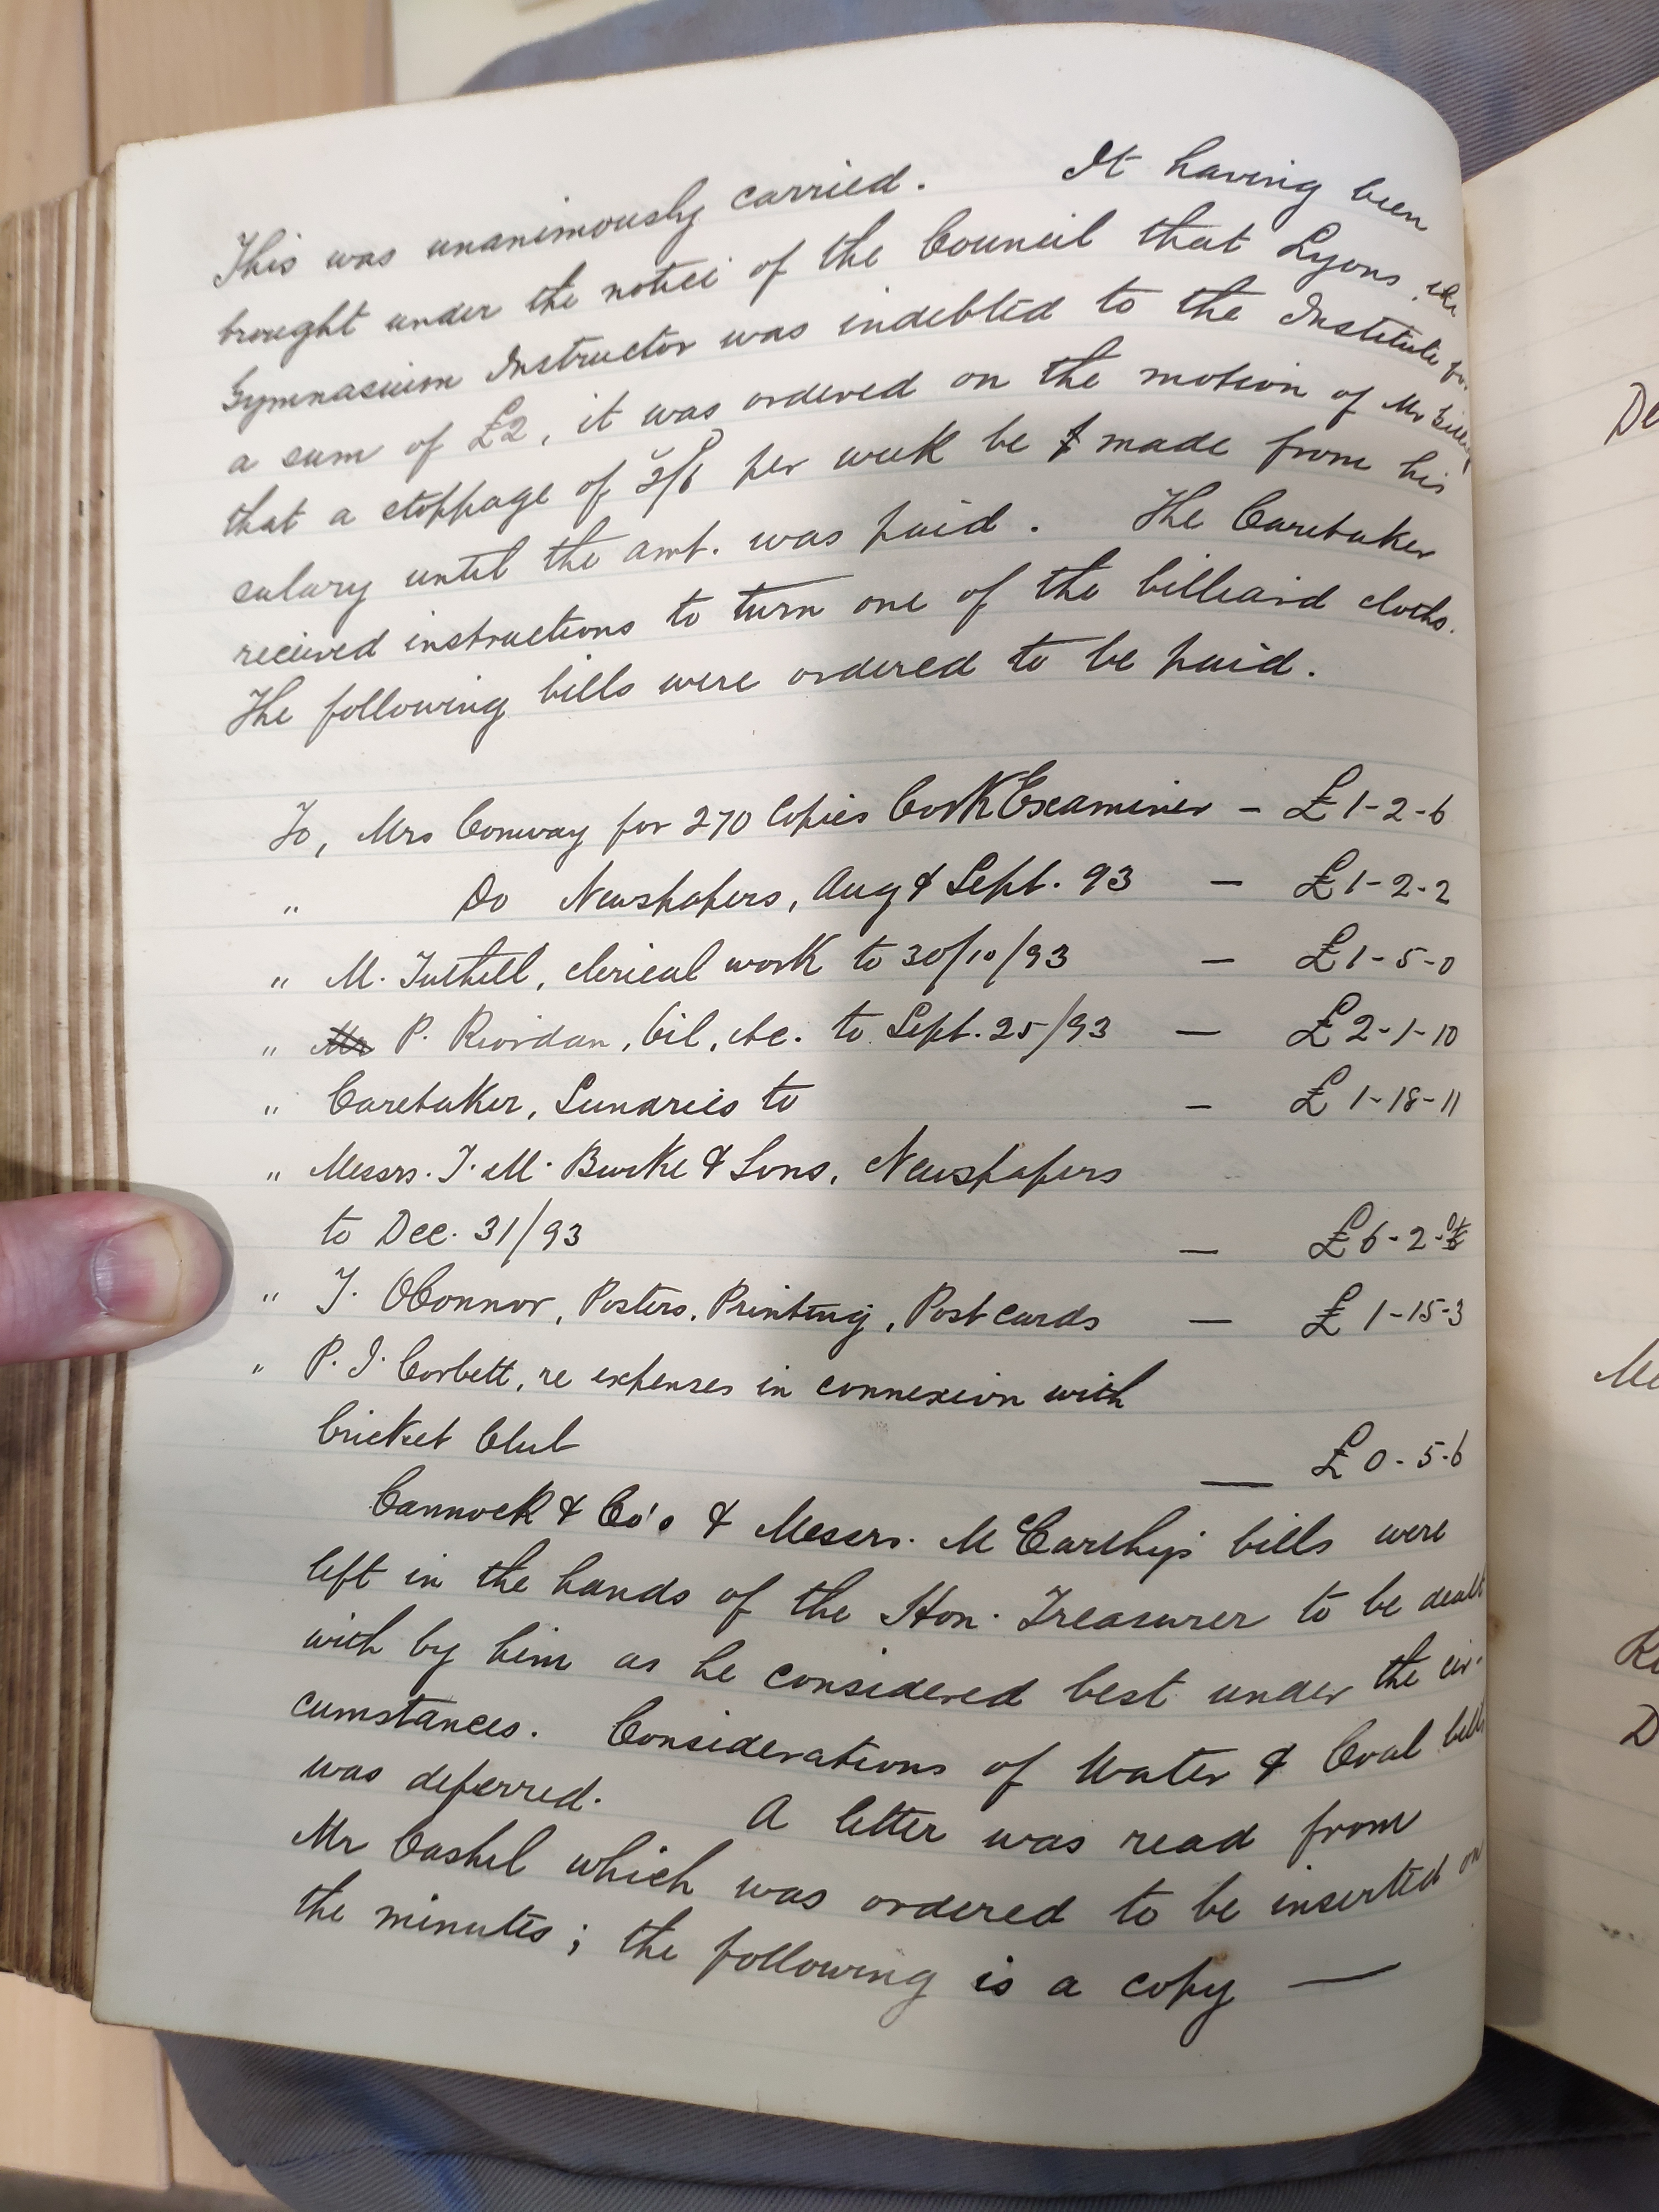 This was unanimously carried. It having been
brought under the notice of the Council that Lyons, the
Gymnasium Instructor was indebted to the Institute for
a sum of £2, it was ordered on the motion of Mr
that a stoppage of per week be made from his
salary until the amt. was paid. The Caretaker
received instructions to turn one of the billiard cloths.
The following bills were ordered to be paid.
To, Mrs Conway for 270 Copies Cork Examiner – £1-2-6
" Do Newspapers, Aug & Sept. 93 – £1-2-2
" M. Tuthill, clerical work to 30/10/93 – £1-5-0
" Mr P. Riordan, Oil, etc. to Sept. 25/93 — £2-1-10
" Caretaker, Sundries to – £1-18-11
" Messrs. T. M. Burke & Sons, Newspapers
to Dec. 31/93 — £6-2-
" J. O'Connor, Posters, Printing, Post cards — £1-15-3
" P. J. Corbett, re expenses in connexion with
Cricket Club — £0-5-6
Cannock & Co's & Messrs. McCarthy's bills were
left in the hands of the Hon. Treasurer to be dealt
with by him as he considered best under the cir-
cumstances. Considerations of Water & Coal bills
was deferred. A letter was read from
Mr Cashel which was ordered to be inserted on
the minutes; the following is a copy —
De
Me
D